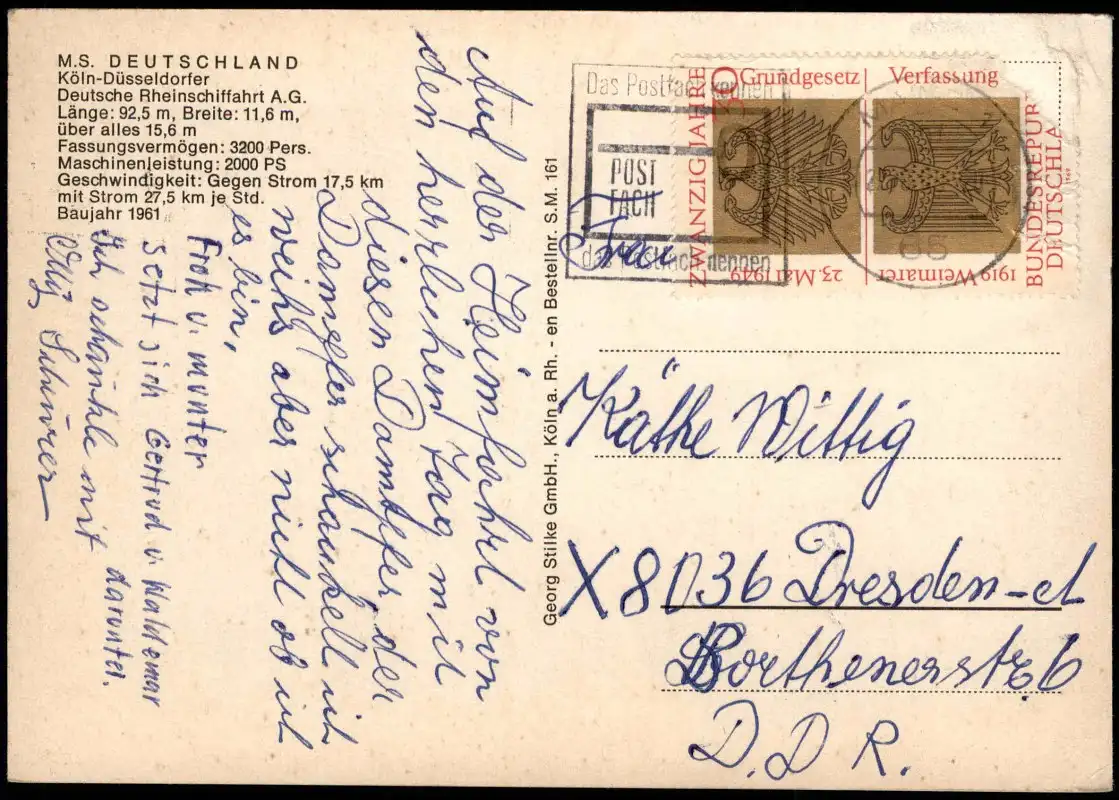 M.S. DEUTSCHLAND
Köln-Düsseldorfer
Deutsche Rheinschiffahrt A.G.
Länge: 92,5 m, Breite: 11,6 m,
über alles 15,6 m
Fassungsvermögen: 3200 Pers.
Maschinenleistung: 2000 PS
Geschwindigkeit: Gegen Strom 17,5 km
mit Strom 27,5 km je Std.
Baujahr 1961
Auf der Heimfahrt von
den herrlichen Tag mit
diesen Dampfer, der
Dampfer schaukelt ich
weihs aber nicht ob ich
es bin,
Froh u. munter
setzt sich Gertrud u. Waldemar
Ich schaukle mit darunter.
Georg Stilke GmbH., Köln a. Rh. - en Bestellnr. S.M. 161
Das Postfach kennen
POST
FACH
das Postfach nennen
ZWANZIG JAHRE
30
Grundgesetz
Verfassung
23. Mai 1949
1919 Weimarer
BUNDESREPUB
DEUTSCHLA
1969
Frau
Käthe Wittig
X 8036 Dresden-
Borthenerstr. 6
D.D.R.